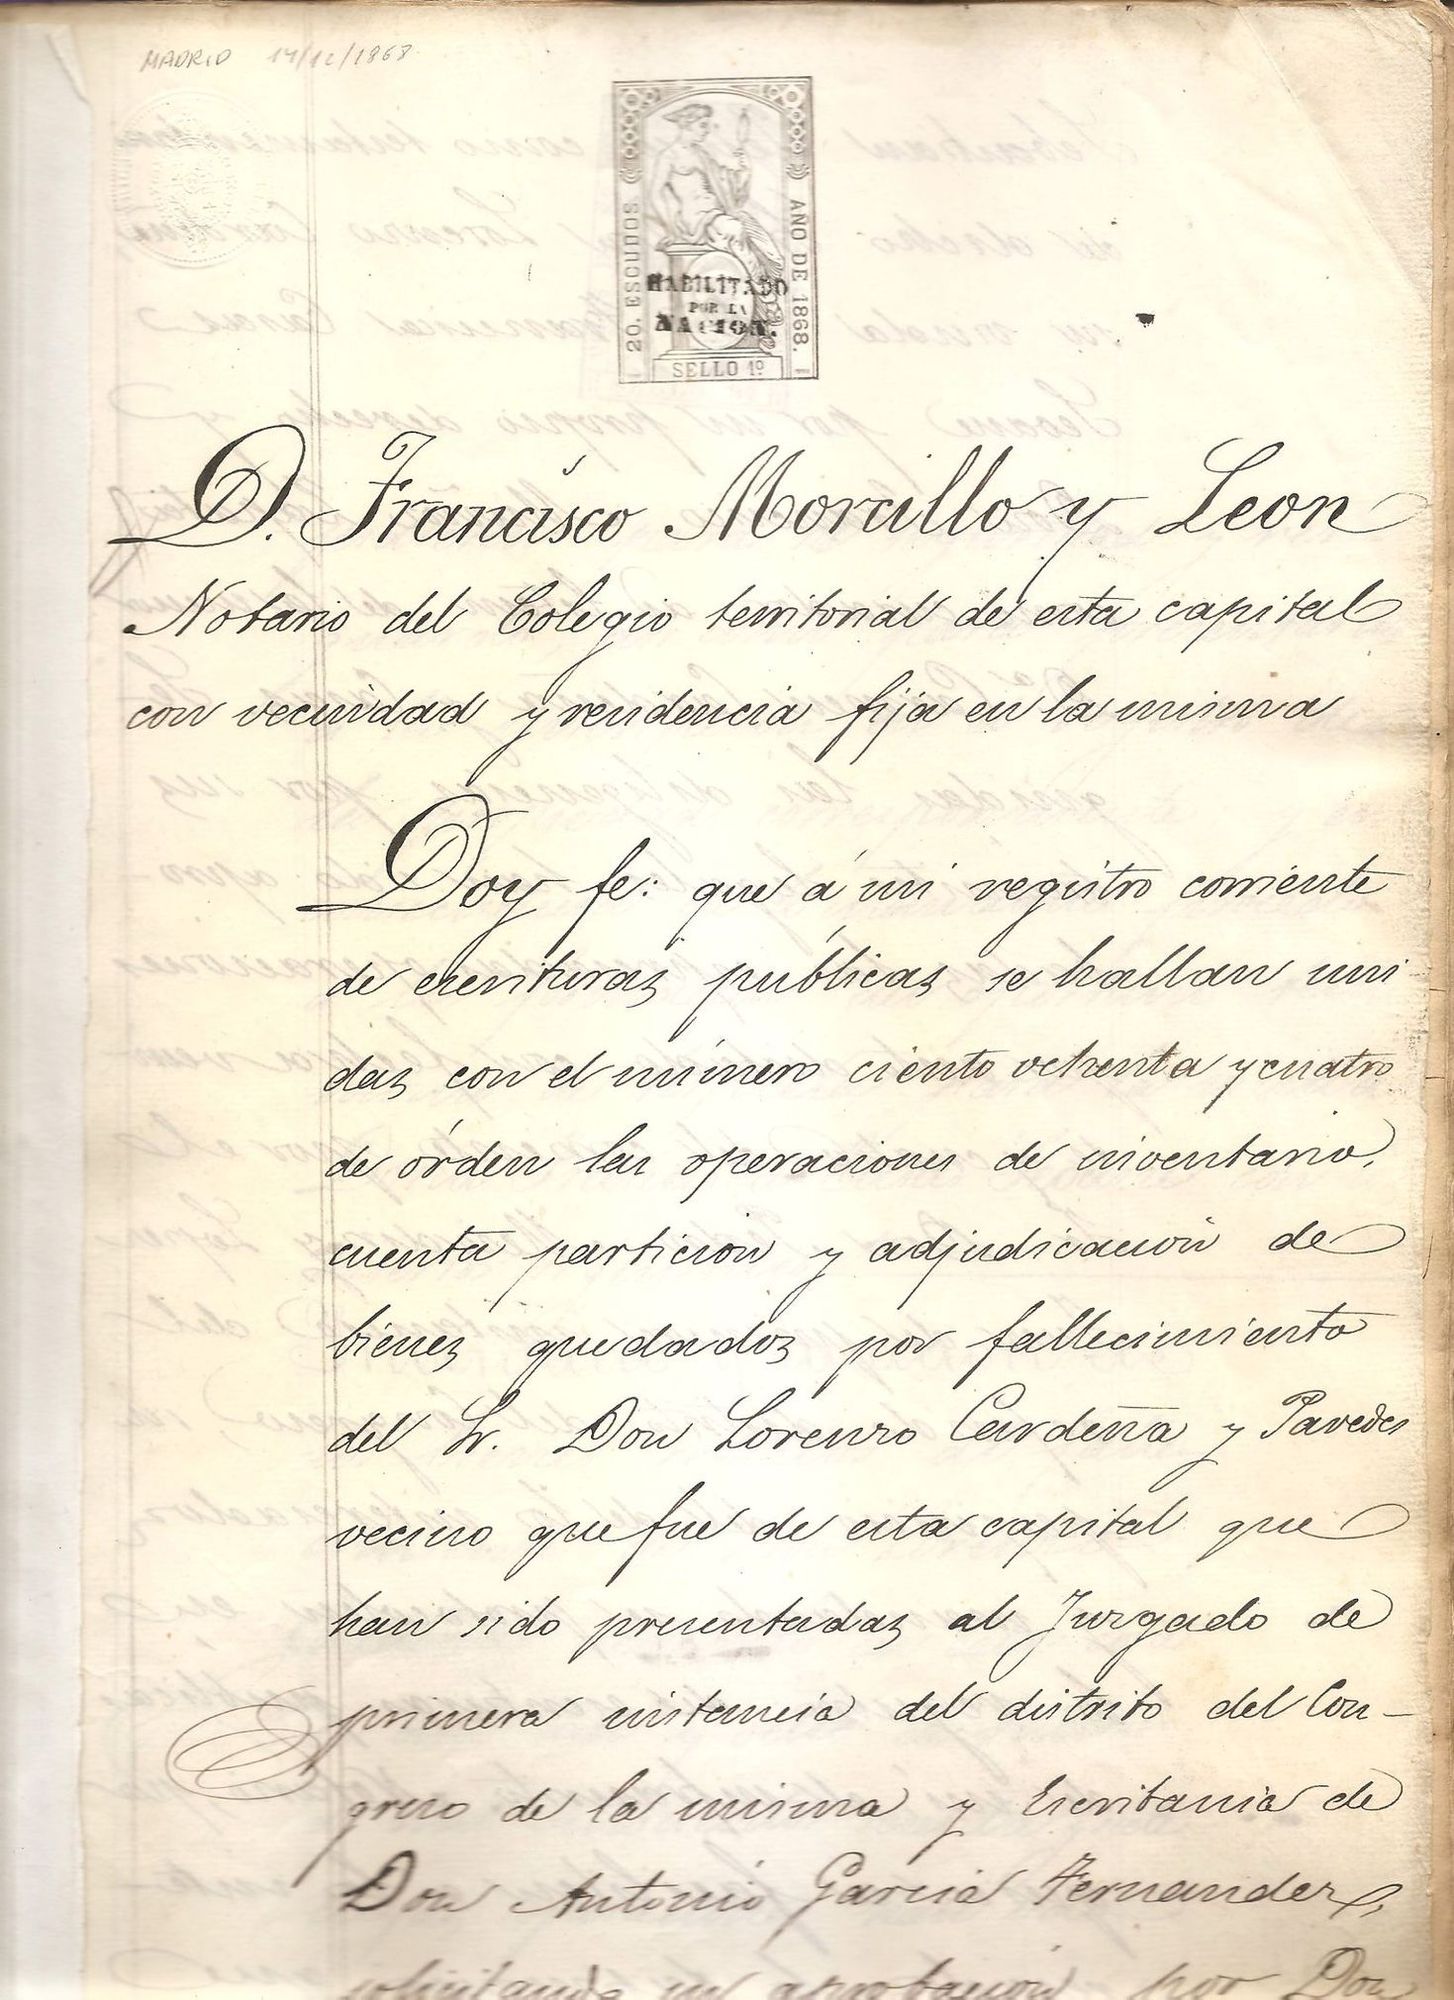 MADRID 14/12/1868
20. ESCUDOS
AÑO DE 1868.
HABILITADO
POR LA
NACION.
SELLO 1º
D. Francisco Morcillo y Leon
Notario del Colegio territorial de esta capital
con vecindad y residencia fija en la misma
Doy fe: que á mi registro corriente
de escrituras públicas se hallan uni
das con el número ciento ochenta y cuatro
de órden las operaciones de inventario,
cuenta particion y adjudicacion de
bienes quedados por fallecimiento
del Sr. Don Lorenzo Cardeña y Paredes
vecino que fue de esta capital que
han sido presentadas al Juzgado de
primera instancia del distrito del Con-
greso de la misma y Escribania de
Don Antonio Garcia Fernandez,
solicitando su aprobacion por Don